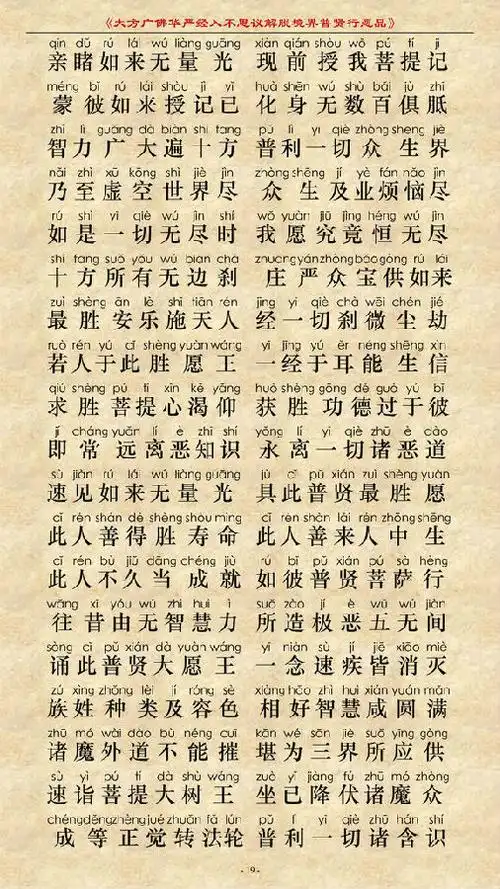 《大方广佛华严经入不思议解脱境界普贤行愿品》
qīn dǔ rú lái wú liàng guāng xiàn qián shòu wǒ pú tí jì
亲睹如来无量光 现前授我菩提记
méng bǐ rú lái shòu jì yǐ huà shēn wú shù bǎi jù zhī
蒙彼如来授记已 化身无数百俱胝
zhì lì guǎng dà biàn shí fāng pǔ lì yí qiè zhòng shēng jiè
智力广大遍十方 普利一切众生界
nǎi zhì xū kōng shì jiè jìn zhòng shēng jí yè fán nǎo jìn
乃至虚空世界尽 众生及业烦恼尽
rú shì yí qiè wú jìn shí wǒ yuàn jiū jìng héng wú jìn
如是一切无尽时 我愿究竟恒无尽
shí fāng suǒ yǒu wú biān chà zhuāng yán zhòng bǎo gòng rú lái
十方所有无边刹 庄严众宝供如来
zuì shèng ān lè shī tiān rén jīng yí qiè chà wēi chén jié
最胜安乐施天人 经一切刹微尘劫
ruò rén yú cǐ shèng yuàn wáng yì jīng yú ěr néng shēng xìn
若人于此胜愿王 一经于耳能生信
qiú shèng pú tí xīn kě yǎng huò shèng gōng dé guò yú bǐ
求胜菩提心渴仰 获胜功德过于彼
jí cháng yuǎn lí è zhī shí yǒng lí yí qiè zhū è dào
即常远离恶知识 永离一切诸恶道
sù jiàn rú lái wú liàng guāng jù cǐ pǔ xián zuì shèng yuàn
速见如来无量光 具此普贤最胜愿
cǐ rén shàn dé shèng shòu mìng cǐ rén shàn lái rén zhōng shēng
此人善得胜寿命 此人善来人中生
cǐ rén bù jiǔ dāng chéng jiù rú bǐ pǔ xián pú sà hèng
此人不久当成就 如彼普贤菩萨行
wǎng xī yóu wú zhì huì lì suǒ zào jí è wǔ wú jiàn
往昔由无智慧力 所造极恶五无间
sòng cǐ pǔ xián dà yuàn wáng yí niàn sù jí jiē xiāo miè
诵此普贤大愿王 一念速疾皆消灭
zú xìng zhǒng lèi jí róng sè xiàng hǎo zhì huì xián yuán mǎn
族姓种类及容色 相好智慧咸圆满
zhū mó wài dào bù néng cuī kān wéi sān jiè suǒ yìng gòng
诸魔外道不能摧 堪为三界所应供
sù yì pú tí dà shù wáng zuò yǐ jiàng fú zhū mó zhòng
速诣菩提大树王 坐已降伏诸魔众
chéng děng zhèng jué zhuǎn fǎ lún pǔ lì yí qiè zhū hán shí
成等正觉转法轮 普利一切诸含识
- 9 -